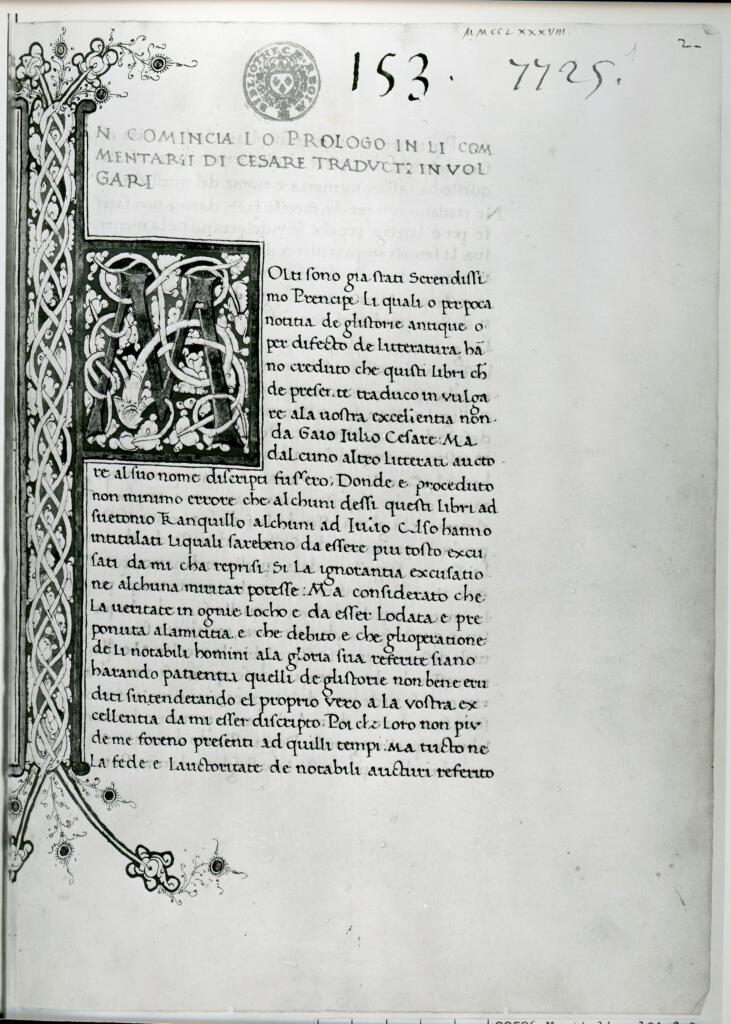 MMCCLXXXVIII
2
BIBLIOTHECÆ REGIÆ
153. 7725.
N COMINCIA LO PROLOGO IN LI COM
MENTARII DI CESARE TRADVCTI IN VOL
GARI
M
Olti sono gia stati Serendissi
mo Prencipe li quali o per poca
notitia de glistorie antique o
per difecto de litteratura hā
no creduto che quisti libri ch
de presente traduco in vulga
re ala uostra excelientia non
da Gaio Iulio Cesare: Ma
dal cuno altro litterati aucto
re al suo nome discripti fussero: Donde e proceduto
non minimo errore che alchuni dessi questi libri ad
suetonio Tranquillo alchuni ad Iulio Celso hanno
intitulati li quali sarebeno da essere piu tosto excu
sati da mi cha reprisi: Si la ignorantia excusatio
ne alchuna miritar potesse: Ma considerato che
La ueritate in ognie Locho e da esser Lodata e pre
ponuta alamicitia e che debito e che glioperatione
de li notabili homini ala gloria sua referite siano
harando patientia quelli de glistorie non bene eru
diti sintenderando el proprio vero a la vostra ex
cellentia da mi esser discripto. Poi che Loro non piv
de me foreno presenti ad quilli tempi. Ma tucto ne
La fede e Lauctoritate de notabili aucturi referito